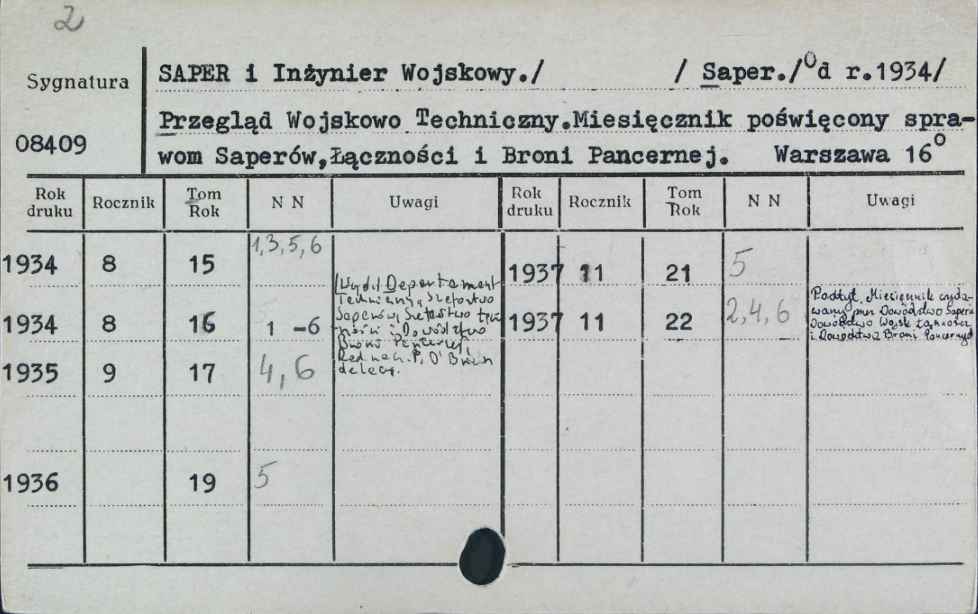 2
Sygnatura
08409
SAPER i Inżynier Wojskowy./ / Saper./Od r.1934/
Przegląd Wojskowo Techniczny.Miesięcznik poświęcony spra-
wom Saperów,Łączności i Broni Pancernej. Warszawa 16°
Rok druku Rocznik Tom Rok N N Uwagi Rok druku Rocznik Tom Rok N N Uwagi
1934 8 15 1,3,5,6
1937 11 21 5
1934 8 16 1 -6
1937 11 22 2,4,6
1935 9 17 4,6
1936 19 5
Wyd. Departament
Techniczny, Szefostwo
Saperów, Szefostwo Łącz
ności i Dowództwo
Broni Pancernej,
Red. nacz. P. O'Brien
de Lacy.
Podtyt. Miesięcznik wyda-
wany przez Dowództwo Saperów
Dowództwo Wojsk Łączności
i Dowództwo Broni Pancernych